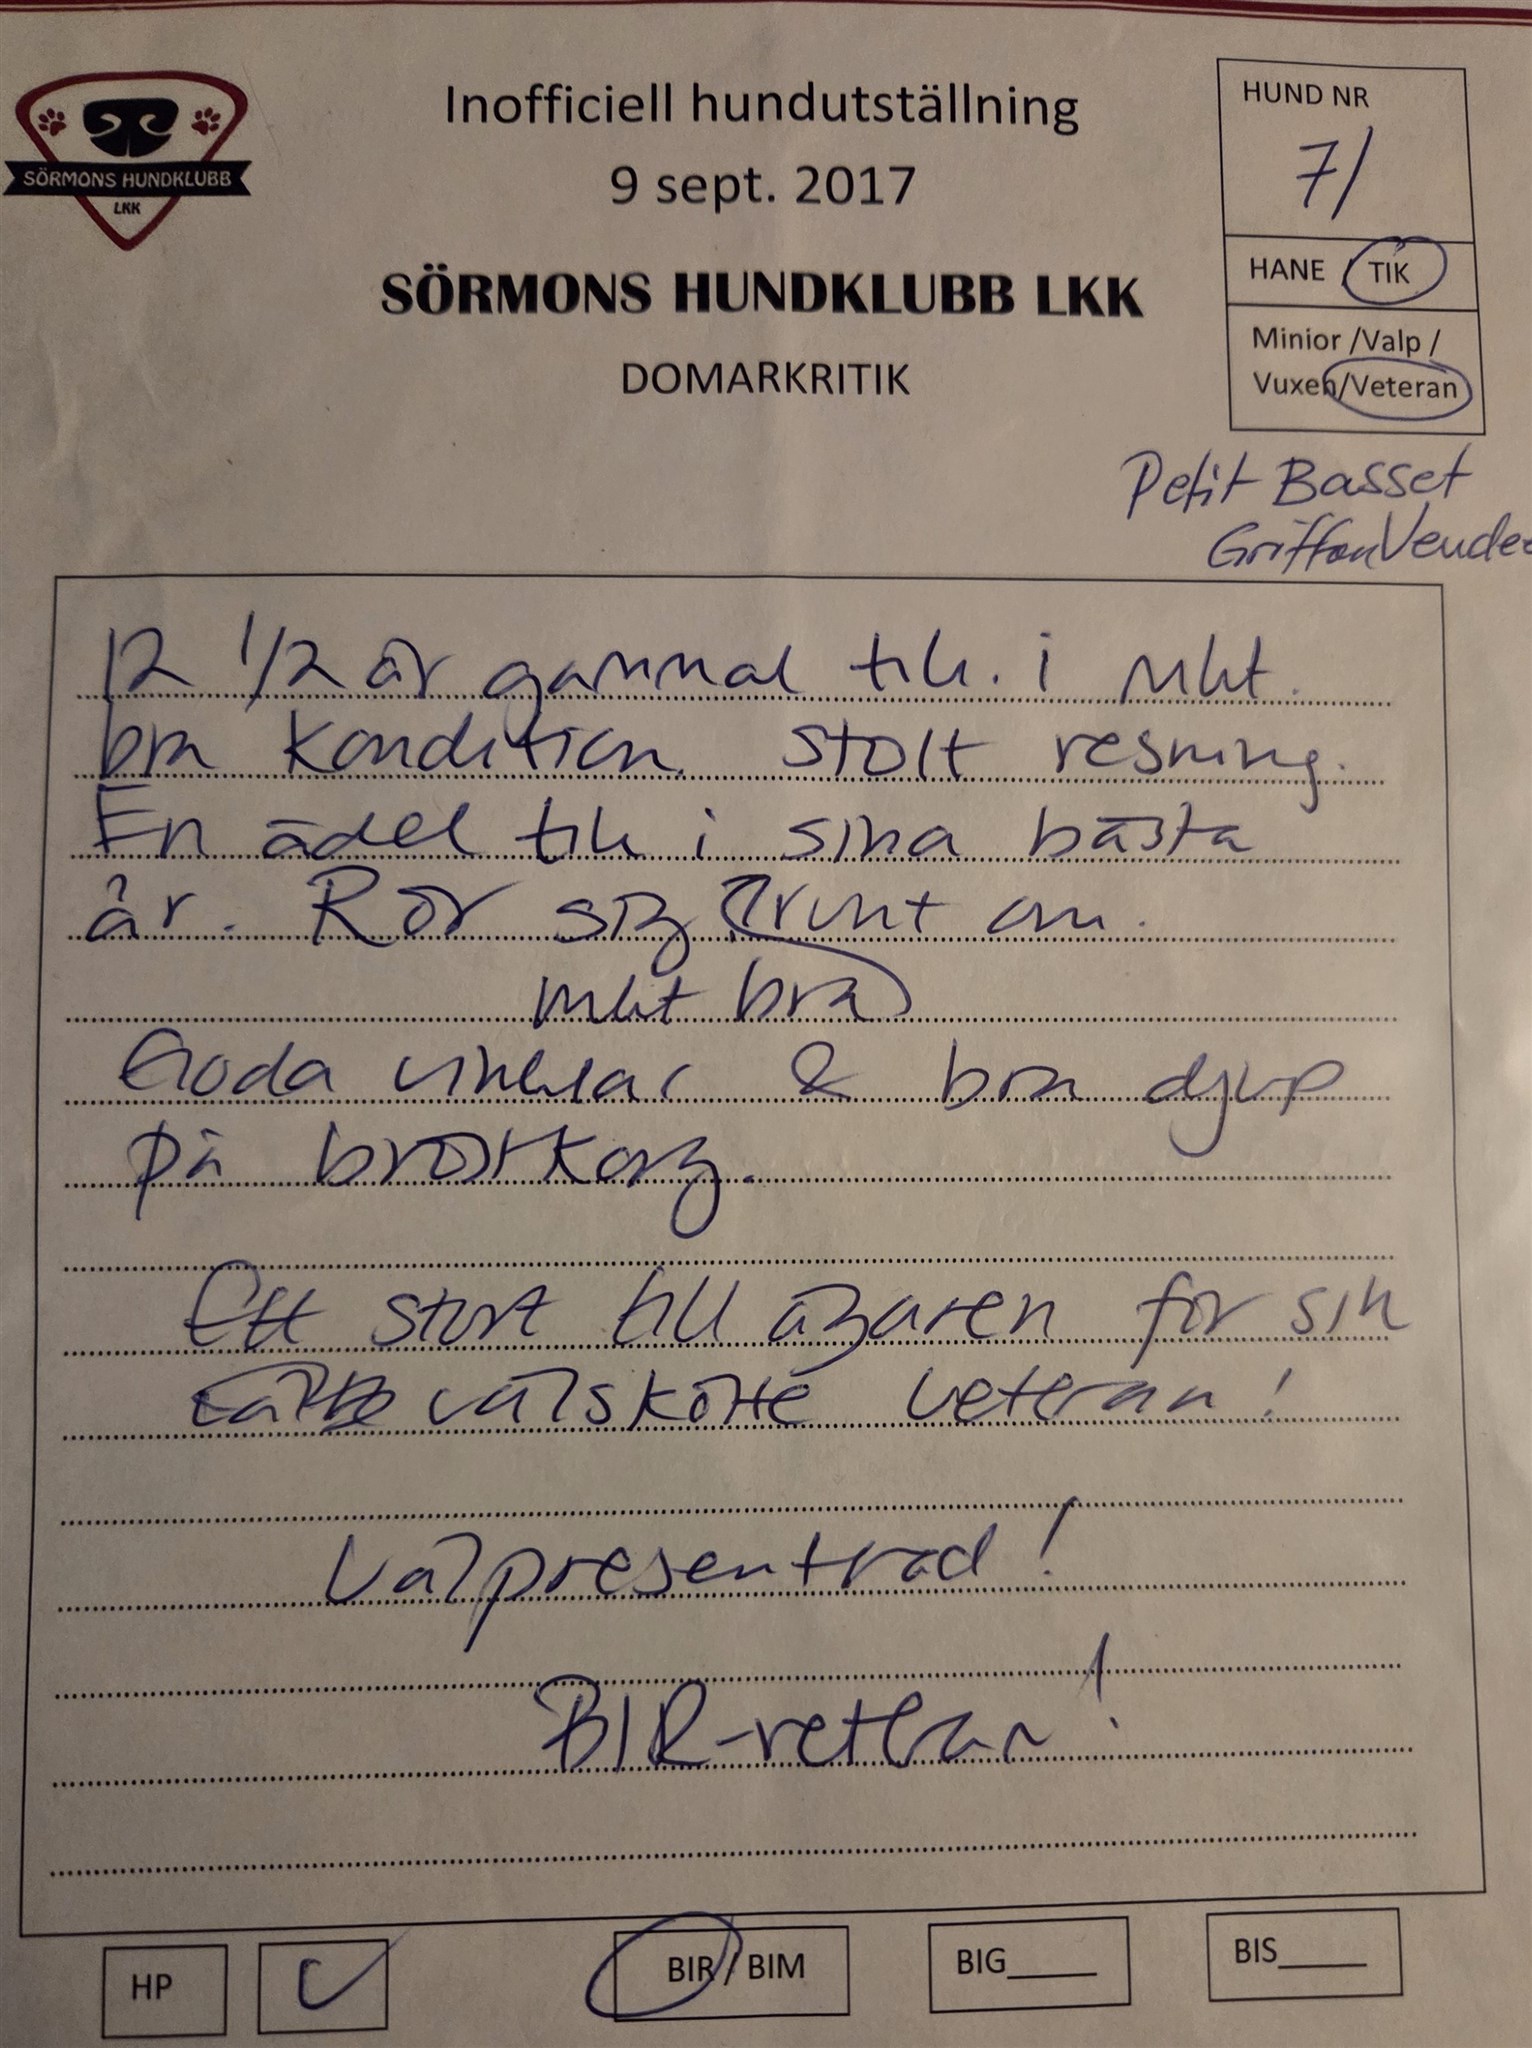 SÖRMONS HUNDKLUBB
LKK
Inofficiell hundutställning
9 sept. 2017
SÖRMONS HUNDKLUBB LKK
DOMARKRITIK
HUND NR
71
HANE / TIK
Minior /Valp /
Vuxen/Veteran
Petit Basset
Griffon Vendee
12 1/2 år gammal tik. i mkt.
bra kondition. stolt resning.
En ädel tik i sina bästa
år. Rör sig runt om.
mkt bra
Goda vinklar & bra djup
på bröstkorg.
Ett stort till ägaren för sin
välskötte veteran!
Välpresentrad!
BIR-veteran!
HP
BIR / BIM
BIG____
BIS____